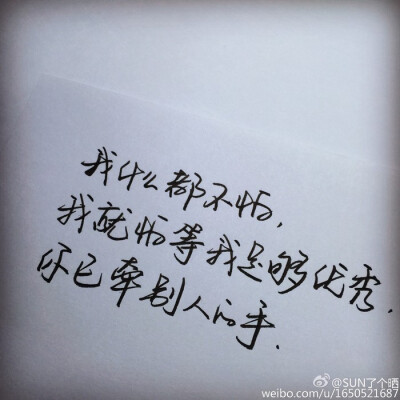 我什么都不怕,
我就怕等我足够优秀.
你已牵别人的手.
@SUN了个晒
weibo.com/u/1650521687